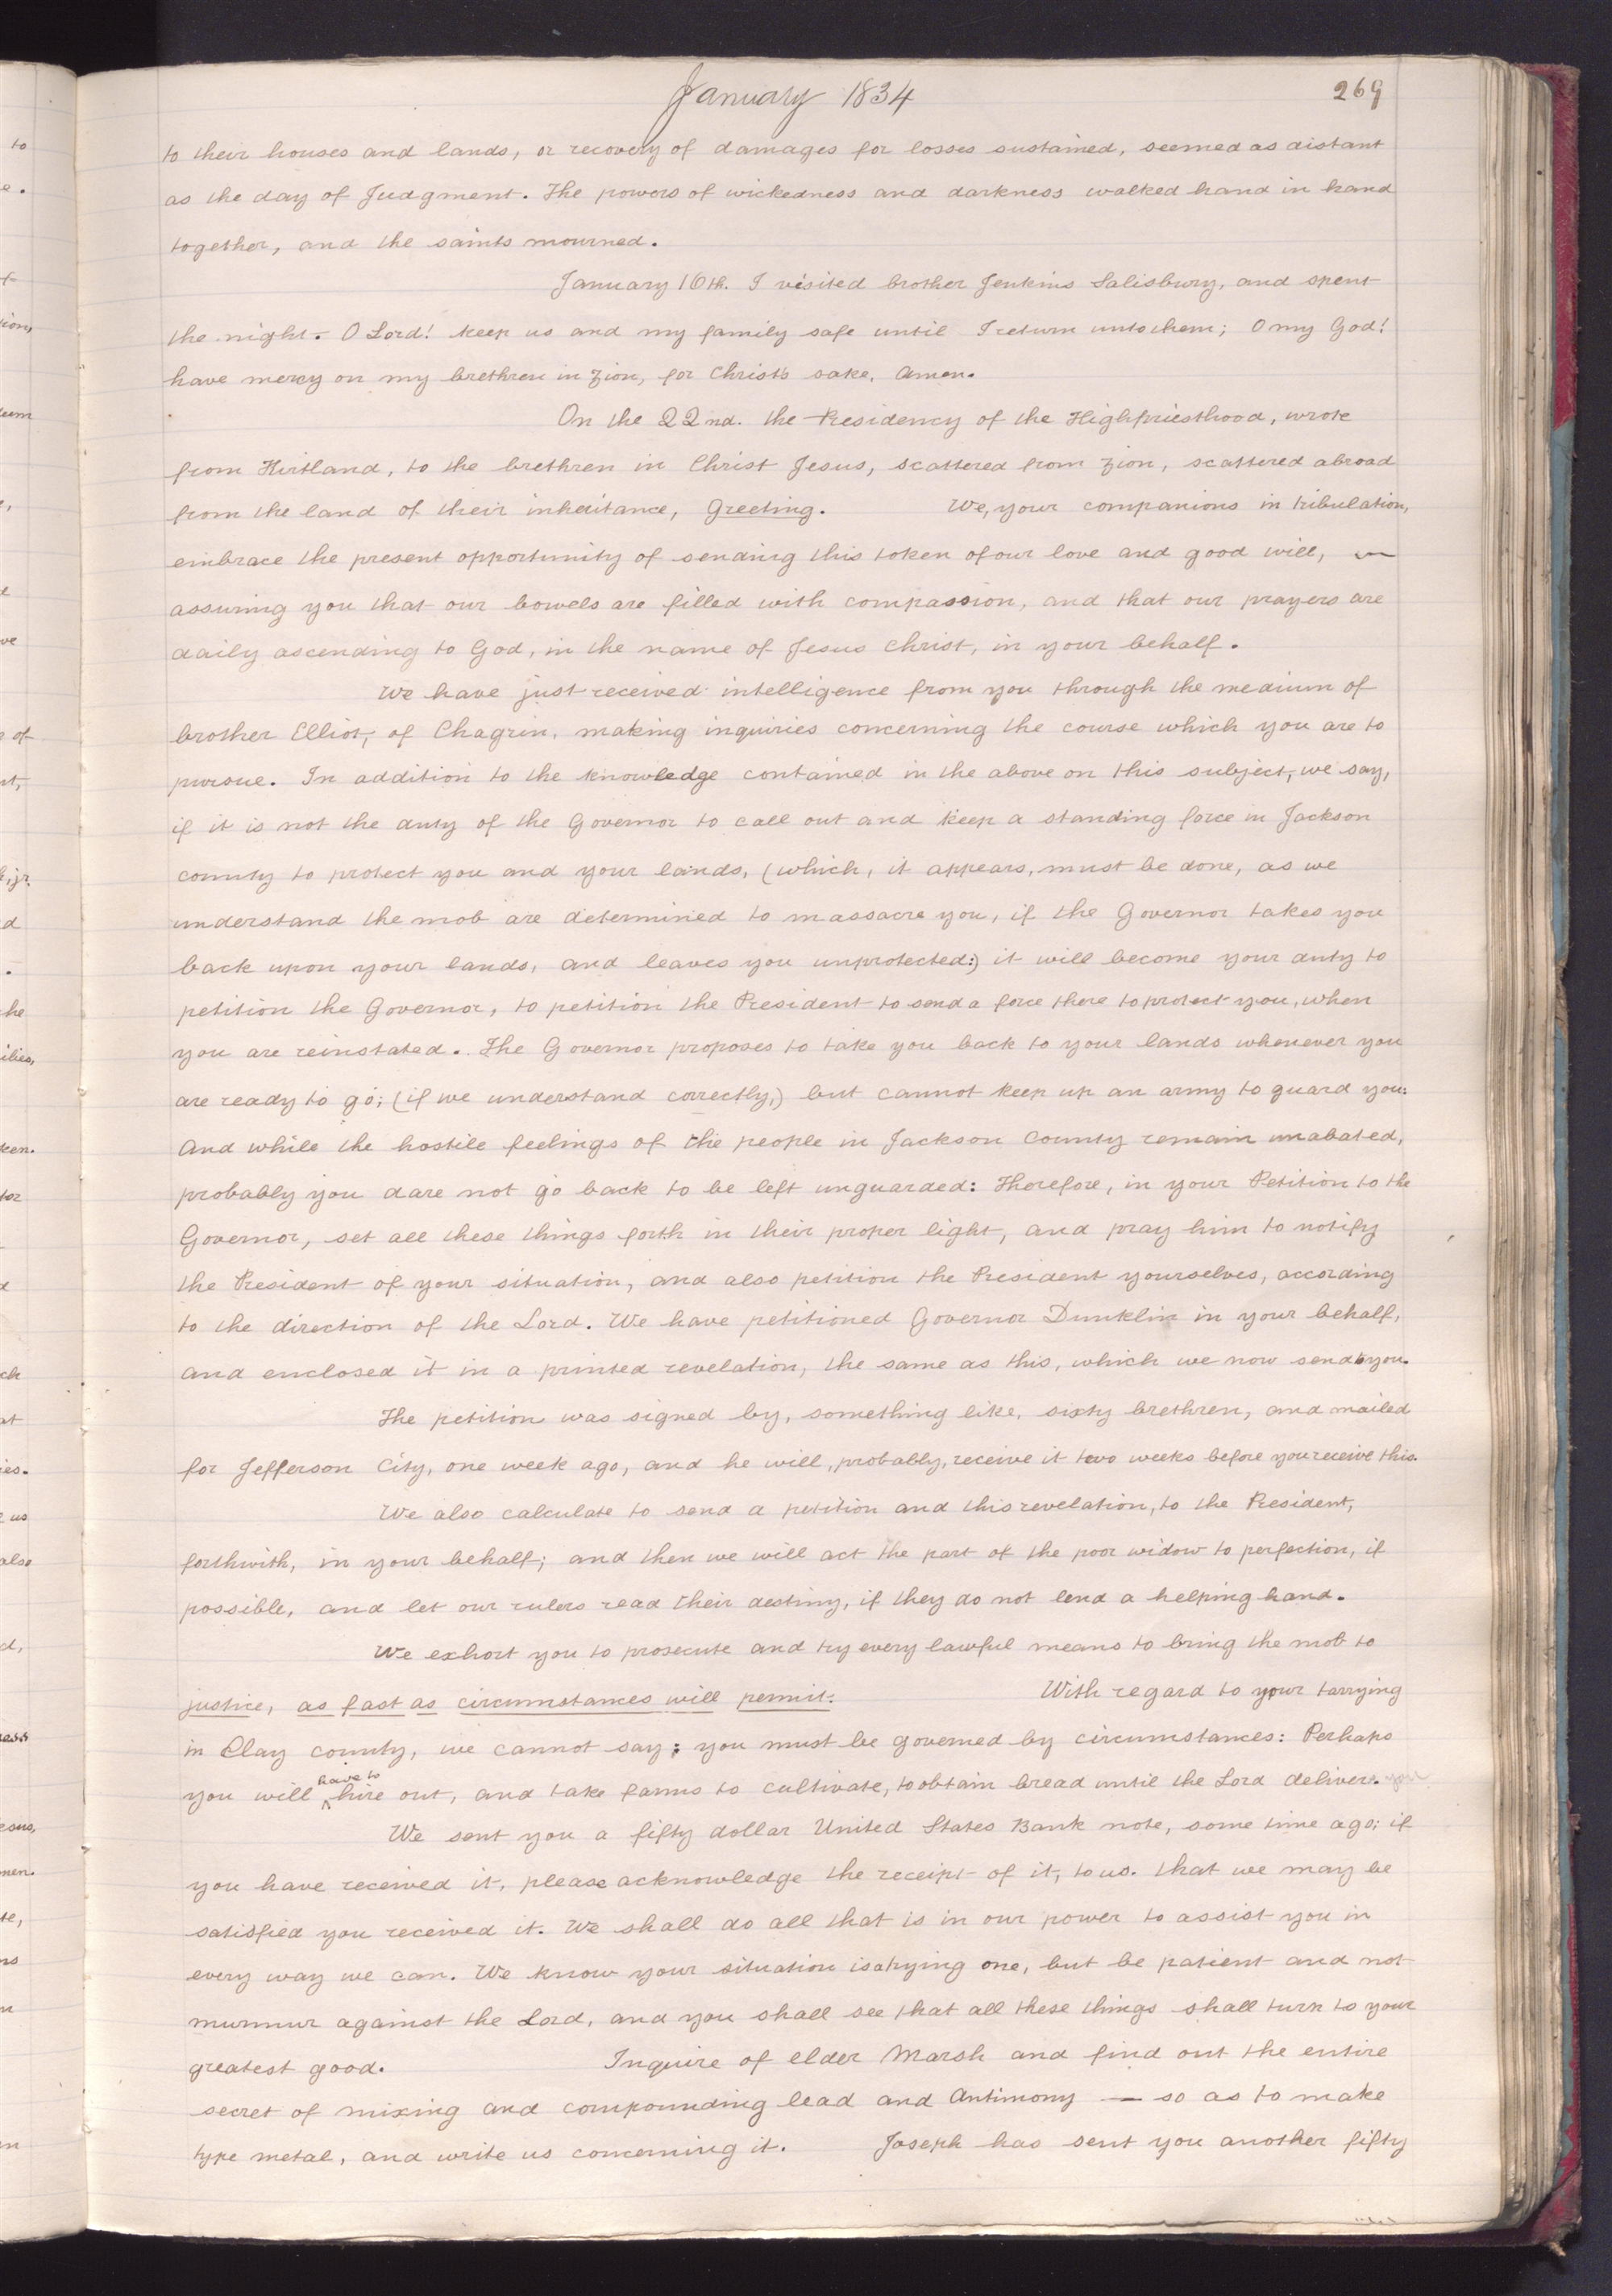 January 1834
269
to their houses and lands, or recovery of damages for losses sustained, seemed as distant
as the day of Judgment. The powers of wickedness and darkness walked hand in hand
together, and the saints mourned.
January 16th. I visited brother Jenkins Salisbury, and spent
the night. O Lord! keep us and my family safe until I return unto them; O my God!
have mercy on my brethren in Zion, for Christ's sake, Amen.
On the 22nd. the Presidency of the Highpriesthood, wrote
from Kirtland, to the brethren in Christ Jesus, scattered from Zion, scattered abroad
from the land of their inheritance, Greeting. We, your companions in tribulation,
embrace the present opportunity of sending this token of our love and good will,
assuring you that our bowels are filled with compassion, and that our prayers are
daily ascending to God, in the name of Jesus Christ, in your behalf.
We have just received intelligence from you through the medium of
brother Elliot, of Chagrin, making inquiries concerning the course which you are to
pursue. In addition to the knowledge contained in the above on this subject, we say,
if it is not the duty of the Governor to call out and keep a standing force in Jackson
county to protect you and your lands, (which, it appears, must be done, as we
understand the mob are determined to massacre you, if the Governor takes you
back upon your lands, and leaves you unprotected:) it will become your duty to
petition the Governor, to petition the President to send a force there to protect you, when
you are reinstated. The Governor proposes to take you back to your lands whenever you
are ready to go; (if we understand correctly,) but cannot keep up an army to guard you:
And while the hostile feelings of the people in Jackson County remain unabated,
probably you dare not go back to be left unguarded: Therefore, in your Petition to the
Governor, set all these things forth in their proper light, and pray him to notify
the President of your situation, and also petition the President yourselves, according
to the direction of the Lord. We have petitioned Governor Dunklin in your behalf,
and enclosed it in a printed revelation, the same as this, which we now send to you.
The petition was signed by, something like, sixty brethren, and mailed
for Jefferson City, one week ago, and he will, probably, receive it two weeks before you receive this.
We also calculate to send a petition and this revelation, to the President,
forthwith, in your behalf; and then we will act the part of the poor widow to perfection, if
possible, and let our rulers read their destiny, if they do not lend a helping hand.
We exhort you to prosecute and try every lawful means to bring the mob to
justice, as fast as circumstances will permit. With regard to your tarrying
in Clay county, we cannot say; you must be governed by circumstances: Perhaps
you will have to hire out, and take farms to cultivate, to obtain bread until the Lord delivers.
We sent you a fifty dollar United States Bank note, some time ago; if
you have received it, please acknowledge the receipt of it, to us. that we may be
satisfied you received it. We shall do all that is in our power to assist you in
every way we can. We know your situation is a trying one, but be patient and not
murmur against the Lord, and you shall see that all these things shall turn to your
greatest good. Inquire of elder Marsh and find out the entire
secret of mixing and compounding lead and Antimony — so as to make
type metal, and write us concerning it. Joseph has sent you another fifty